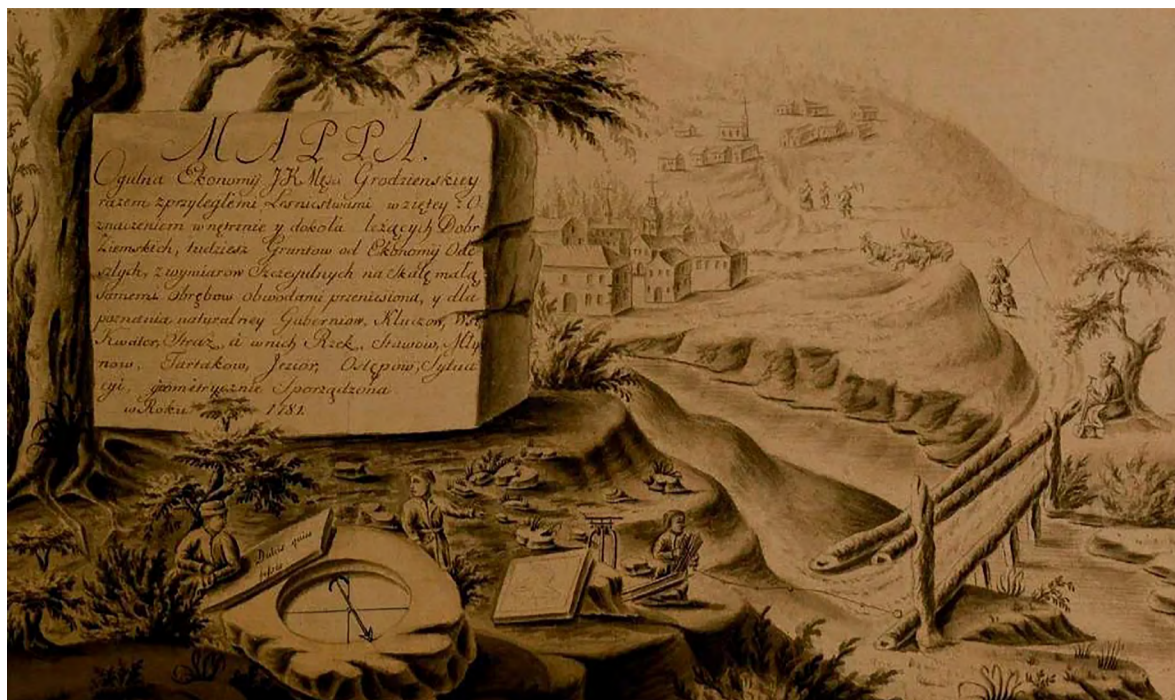 MAPPA.
Ogulna Ekonomij JKMęsci Grodzienskiey
razem z przyległemi Lesnictwami wziętey z O-
znaczeniem wnętrznie y dokoła leżących Dobr
Ziemskich, tudziesz Gruntow od Ekonomij Ode-
szłych, z wymiarow Szczegulnych na Skalę małą,
Samemi Obrębow obwodami przeniesiona, y dla
poznania naturalney Guberniow, Kluczow, Wsi,
Kwater, Straz, á w nich Rzek, Stawow, Mły-
now, Tartakow, Jezior, Ostępow, Sytua-
cyi, geometrycznie Sporządzona
w Roku 1781.
Dulcis quies